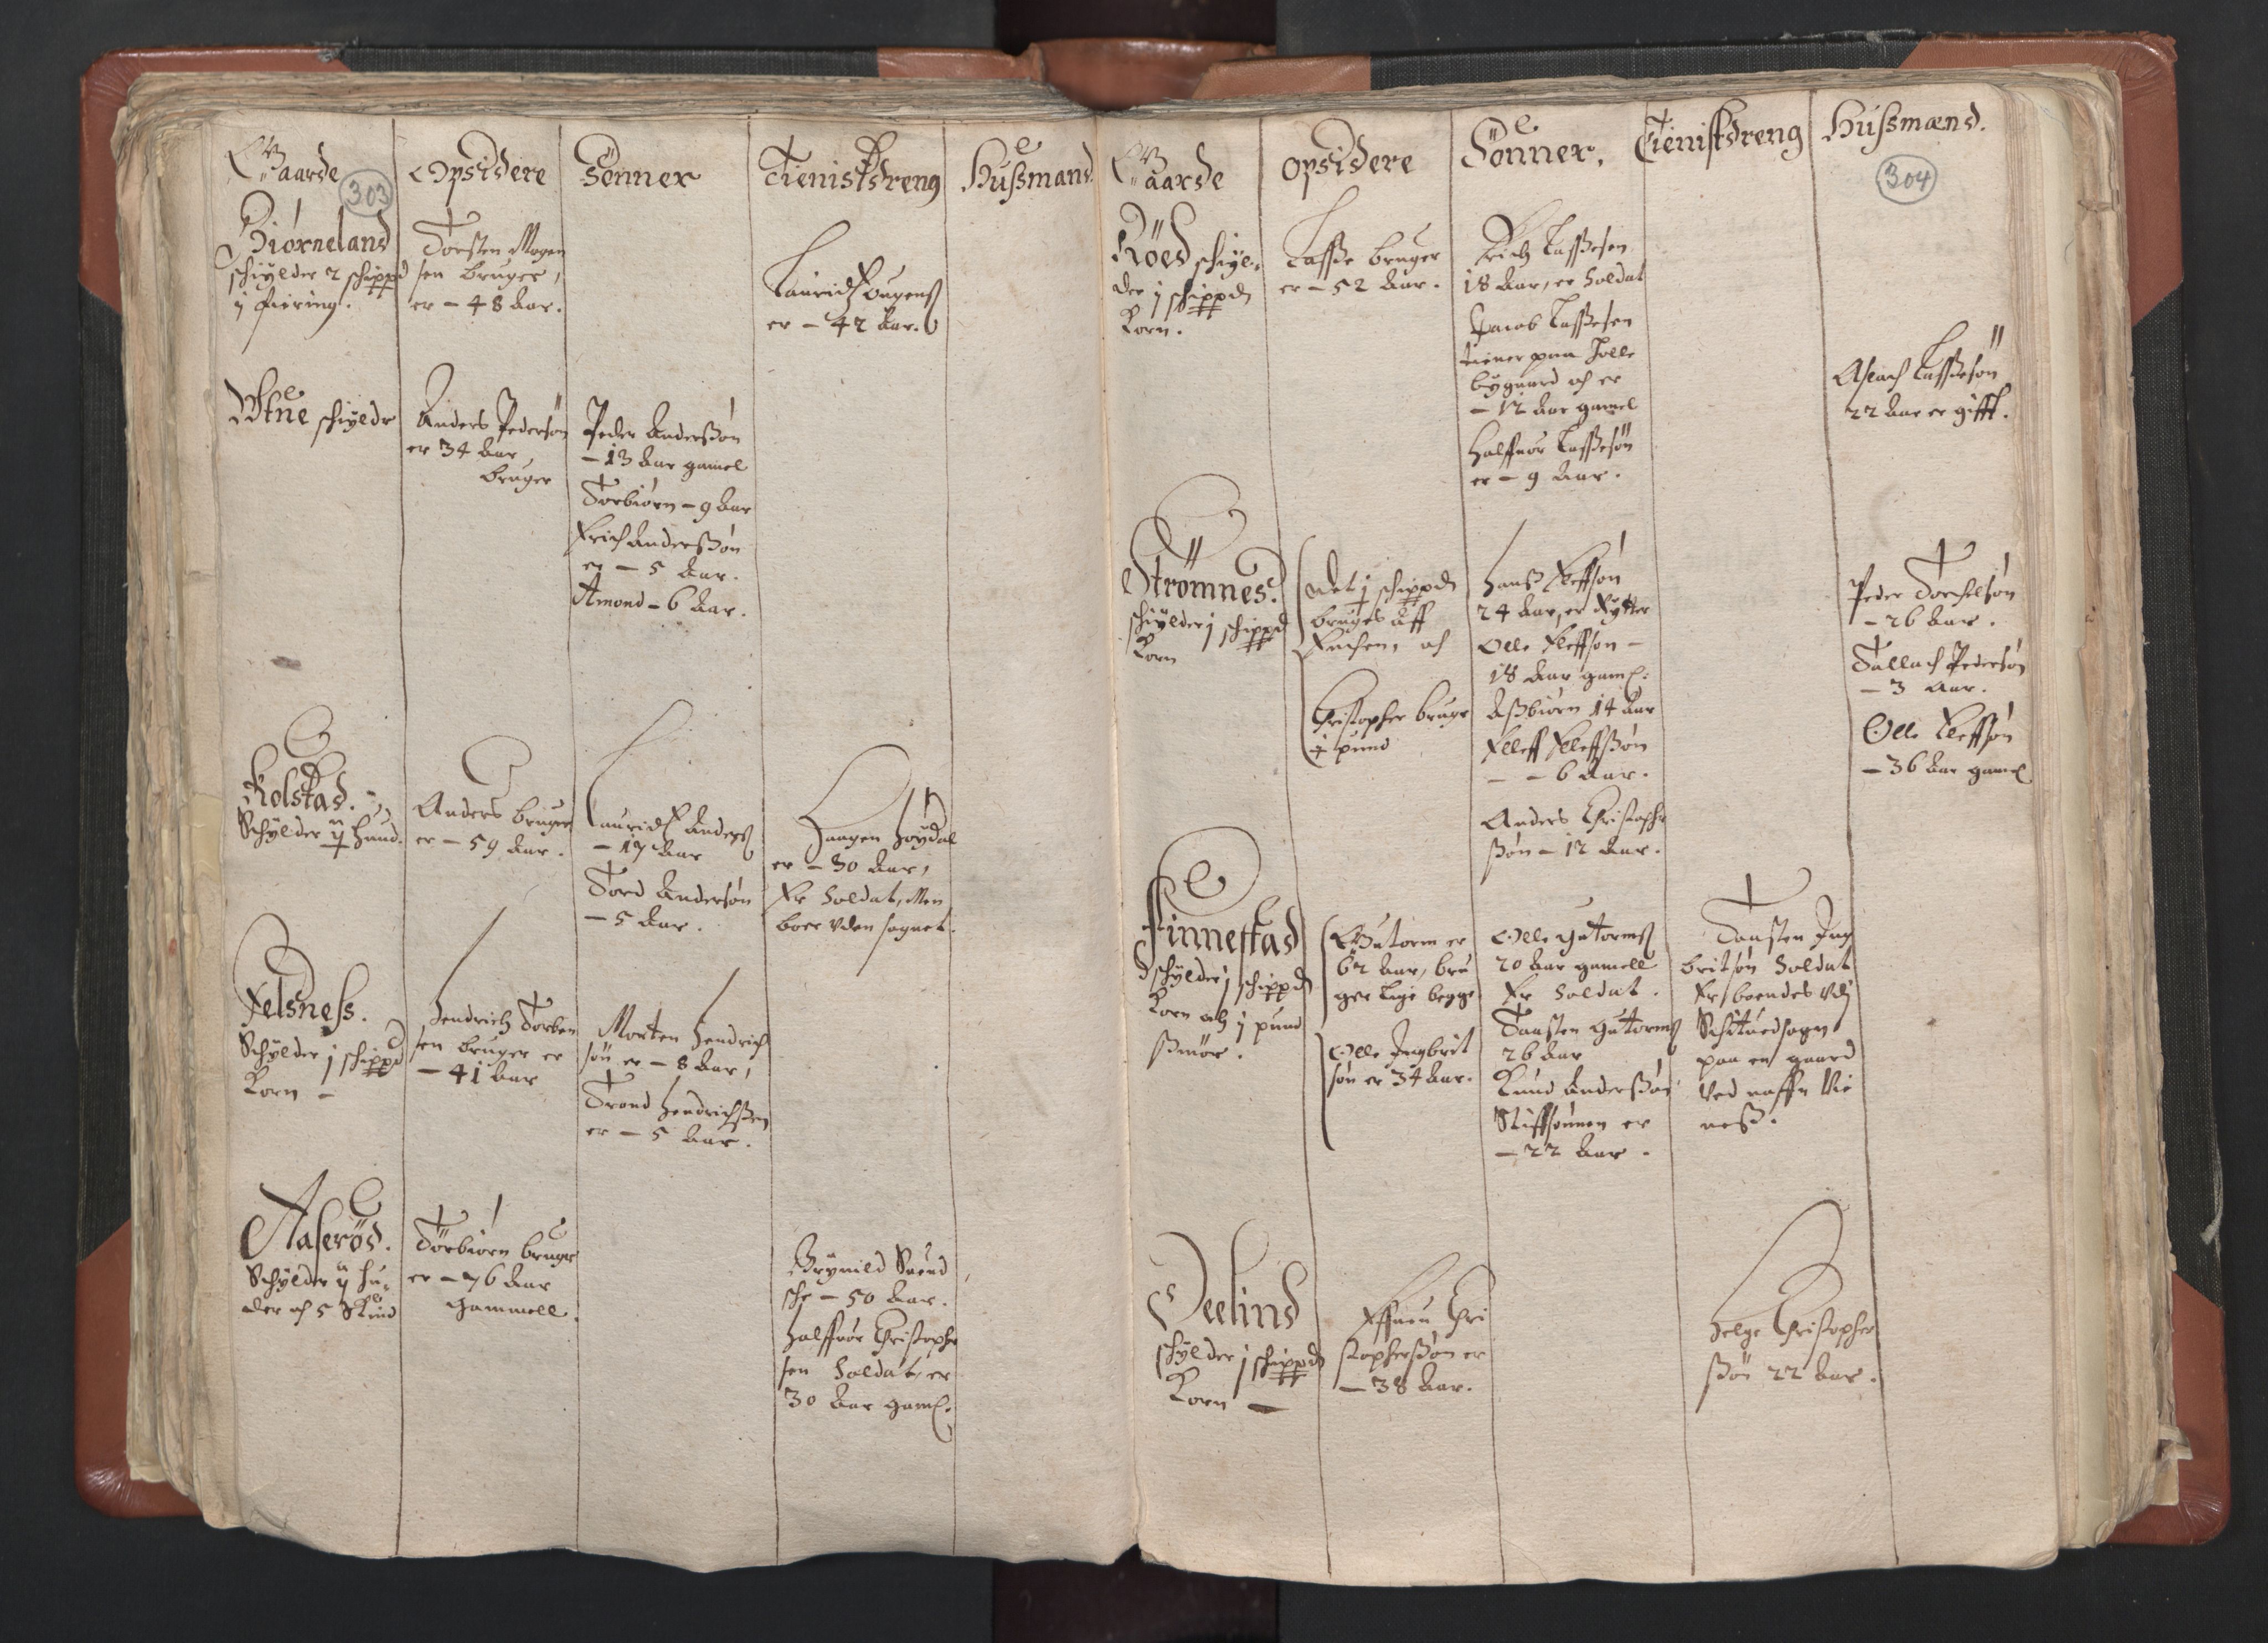 Gaarde
303
Opsidere
Sönner
Tienistdreng
Hußmand
Biørneland
schiylder 2 schippd
i
Torsten Mogen
sen bruger,
er – 48 Aar.
er – 42 Aar.
schiyldr
Anders Pedersøn
er 34 Aar,
bruger
Peder Anderßøn
– 13 Aar gamel
Torbiørn – 9 Aar
Erich Anderßøn
er – 5 Aar.
Amond – 6 Aar.
Kolstad.
Schylder ÿ hund.
Anders bruger
er – 59 Aar.
Lauridtz Anders
– 17 Aar
Tord Andersøn
– 5 Aar.
Haagen Høydal
er – 30 Aar,
Er Soldat, Men
boer uden sognet.
Felsness.
Schylder j schippd
Korn –
Hendrich Torben
sen bruger er
– 41 Aar
Morten Hendrich
søn er – 8 Aar,
Trond Hendrichßen
er – 5 Aar.
Aaserød.
Schylder ÿ hu-
der och 5 Skind
Törbiørn bruger
er – 76 Aar
gammell.
Brynild Suend
sche – 50 Aar.
Halffuor Christopher
sen Soldat, er
30 Aar gaml.
Gaarde
opsidere
Sönner.
Tienistdreng
Hußmænd.
304
Röed schiyl-
der j schippd
Korn.
Tasse bruger
er – 52 Aar.
Erich Tassesen
18 Aar, er Soldat
Jacob Tassesen
tiener paa Holle
bygaard och er
– 12 Aar gamel
Halffuor Tassesøn
er – 9 Aar.
Aslach Tassesøn
22 Aar er gifft.
Strömnes.
schylder j schippd
Korn
Det j schippd
bruges aff
och
Christopher bruger
pund
Hanß Elleffsøn
24 Aar, er Rytter
Olle Elleffson –
18 Aar gaml.
Aßbiørn 14 Aar
Elleff Elleffßøn
– – 6 Aar.
Anders Christopher
ßøn – 12 Aar.
Peder Torchelsøn
– 26 Aar.
Tallach Pedersøn
– 3 Aar.
Olle Elleffsøn
– 36 Aar gaml
Finnestad
schylder j schippd
Korn och j pund
smør.
Gutorm er
62 Aar, bru
ger lige begge
Olle Ingbrit
søn er 34 Aar.
Olle Gutorms
20 Aar gamell
Er Soldat.
Taasten Gutorms
26 Aar
Knud Anderßøn
Stiffsønnen er
– 22 Aar.
Taasten Ing
britsøn Soldat
Er boendes udj
Schituedsogn
paa en gaard
ved naffn Vie
neß.
Deelind
schylder j schippd
Korn –
Effuen Chri
stopherßøn er
– 38 Aar.
Helge Christopher
ßøn 22 Aar.